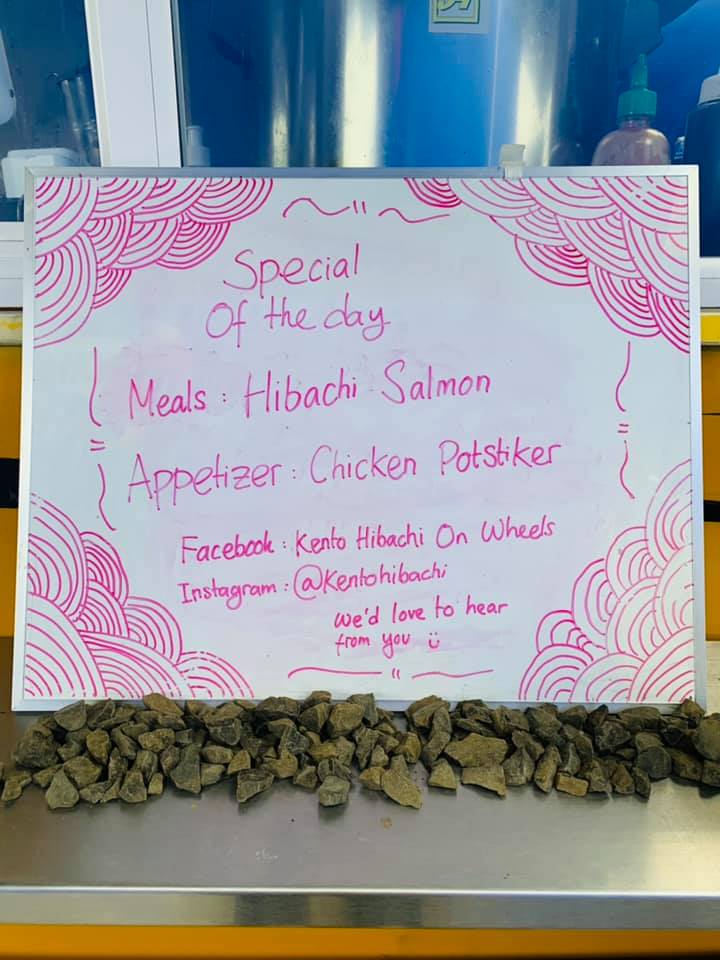 Special
Of the day
Meals : Hibachi Salmon
Appetizer : Chicken Potstiker
Facebook : Kento Hibachi On Wheels
Instagram : @Kentohibachi
We'd love to hear
from you ü